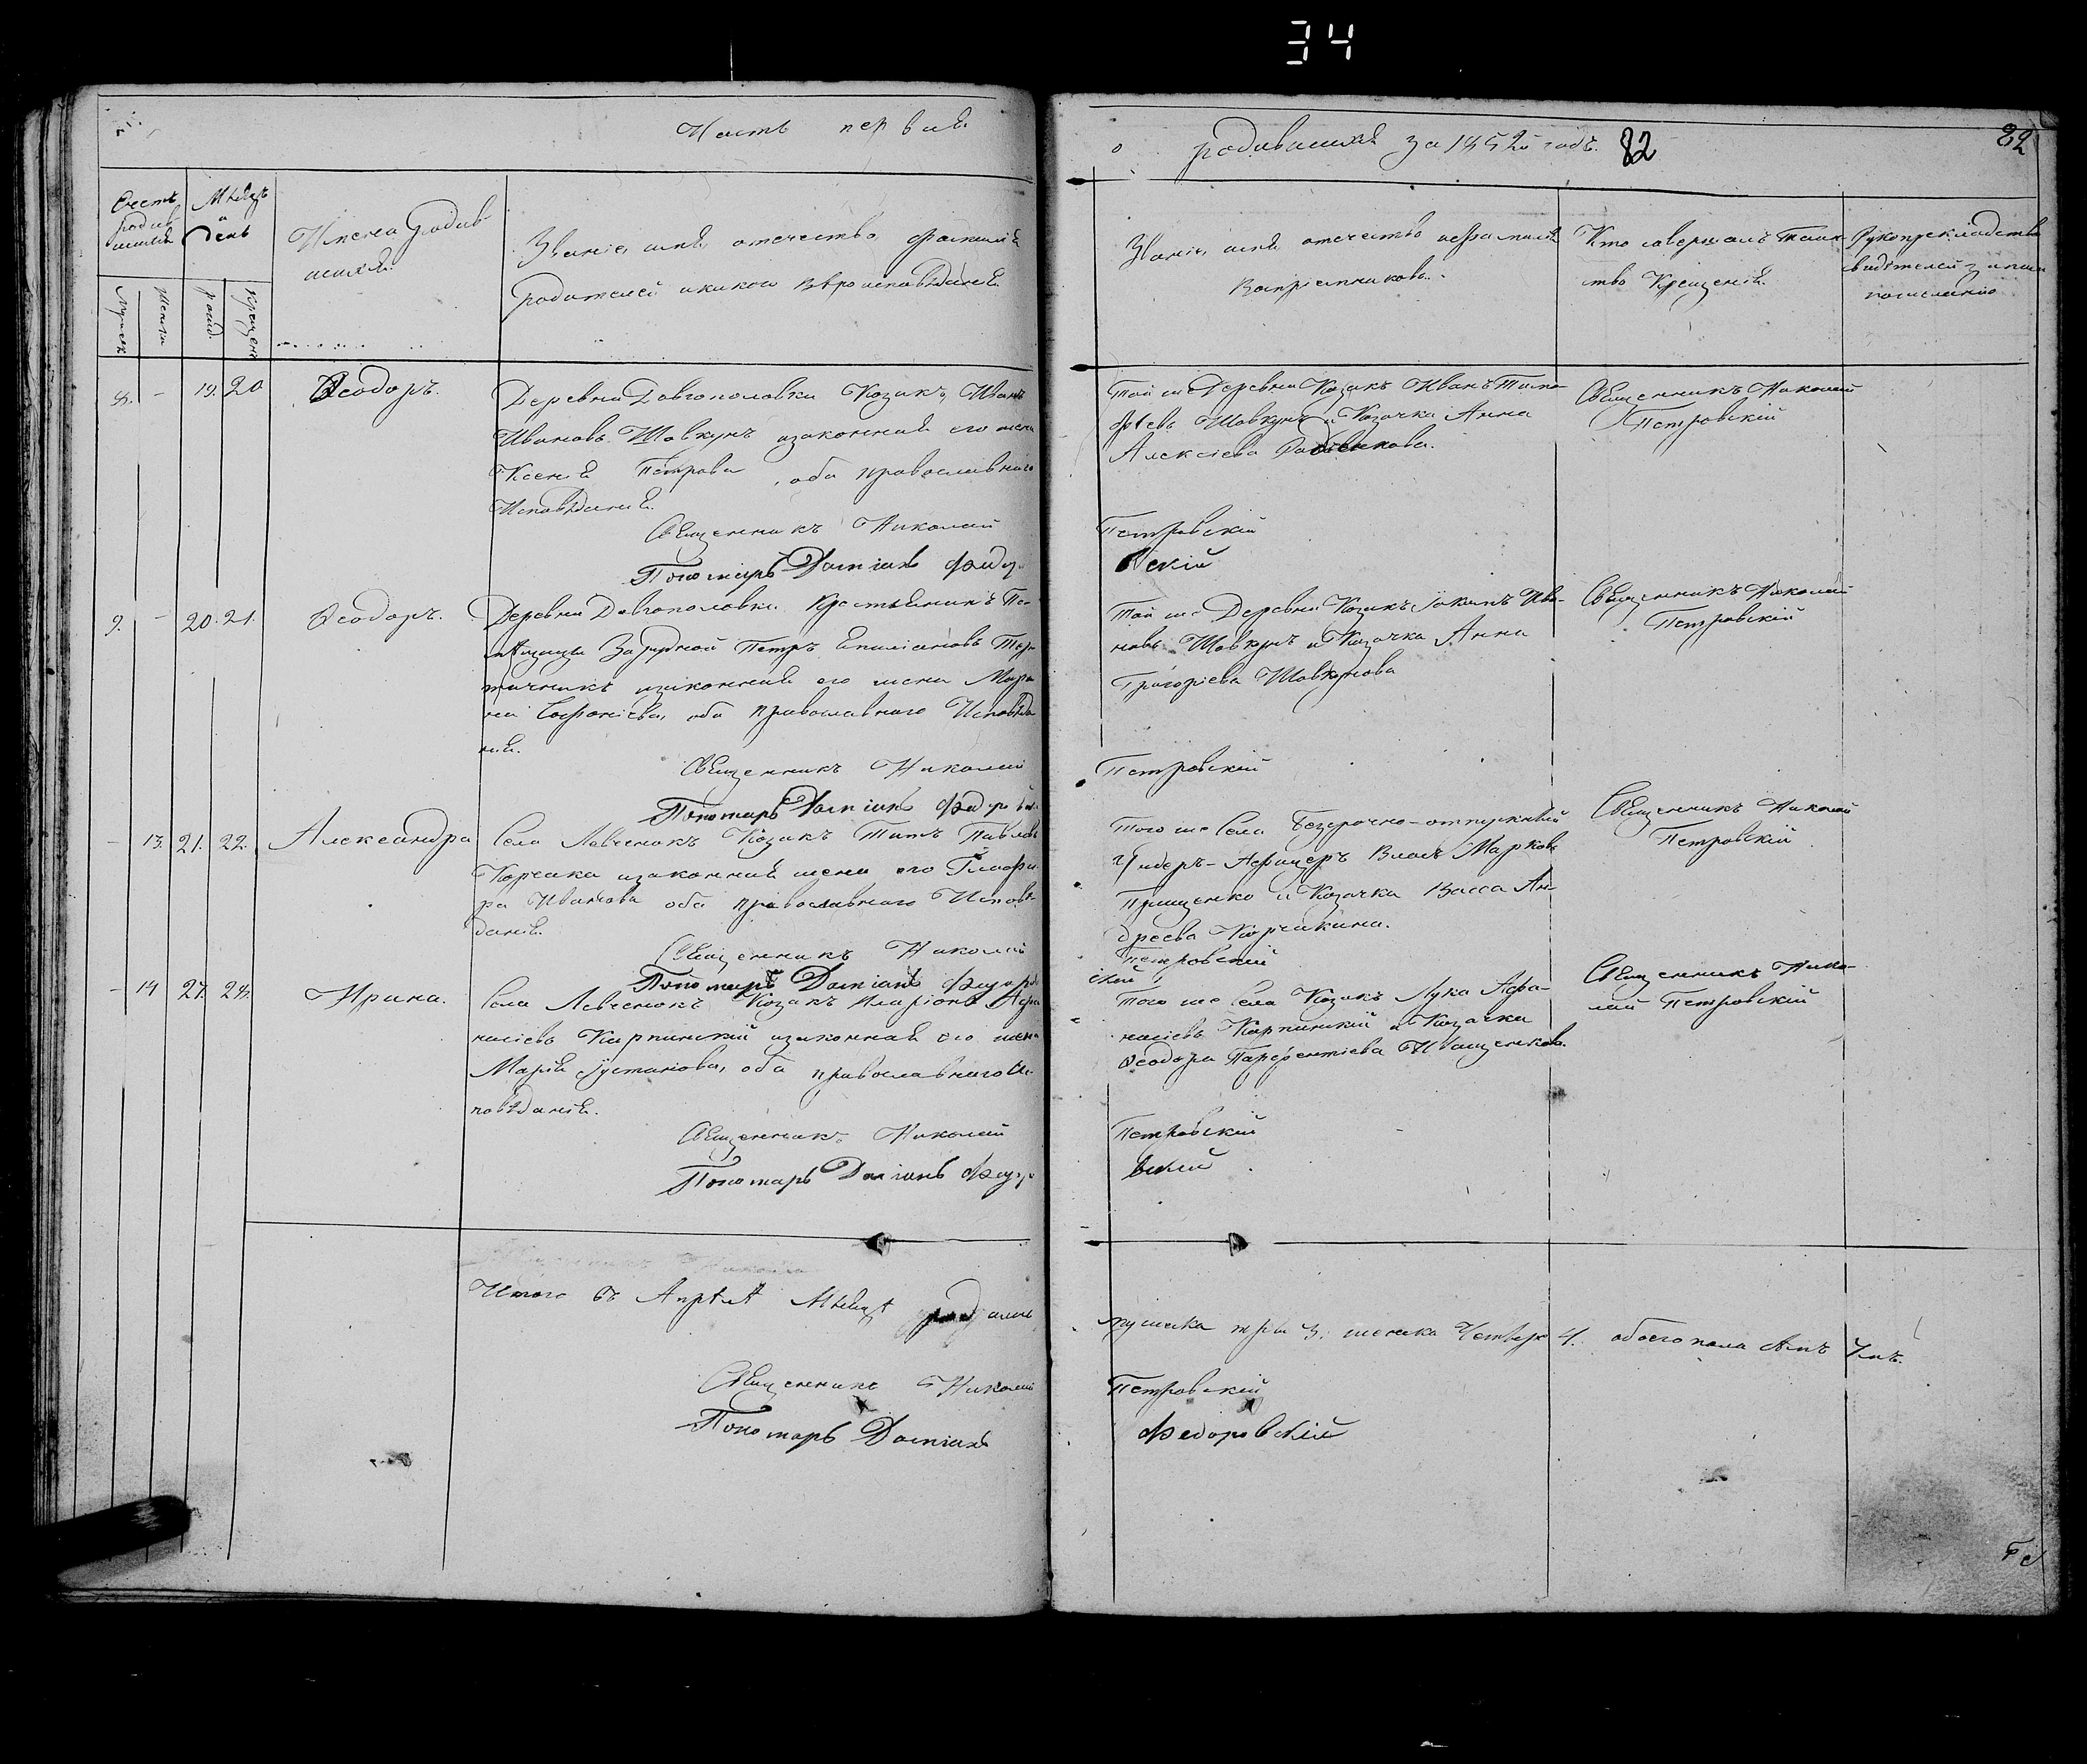 34
Часть первая
о родившихся за 1852й годъ. 82
82
Счетъ родившихся
Мѣсяцъ и день
Имена родившихся.
Званіе, имя, отечество, фамилія
родителей и какого вѣроисповѣданія.
Званіе, имя отечество и фамилія
воспріемниковъ.
Кто совершалъ таинство Крещенія.
Рукоприкладство
свидѣтелей записи
по желанію
Мужеск
Женска
рожд.
Крещенія
8. – 19. 20 Ѳеодоръ.
Деревни Довгополовки Козакъ Иванъ
Ивановъ Шовкунъ и законная его жена
Ксенія Петрова, оба православнаго
Исповѣданія.
Священникъ Николай
Пономарь Даміанъ Федо
Той же Деревни Козакъ Иванъ Тимо-
фѣевъ Шовкунъ и Козачка Анна
Алексіева
Петровскій
вскій
Священникъ Николай
Петровскій
9. – 20. 21. Ѳеодоръ.
Деревни Довгополовки Крестьянинъ По-
мѣщицы Зарудной Петръ Емиліановъ
и законная его жена Мари
на Софоніева, оба православнаго Исповѣда
нія.
Священникъ Николай
Пономарь Даміанъ Федоров
Той же Деревни Козакъ Іоакимъ Ива-
новъ Шовкунъ и Козачка Анна
Григоріева Шовкунова
Петровскій
Священникъ Николай
Петровскій
– 13. 21. 22. Александра
Села Левченокъ Козакъ Титъ Павловъ
Корчака и законная жена его Гликѣ
ра Иванова оба православнаго Исповѣ
данія.
Священникъ Николай
Пономарь Даміанъ Федоров
Того же Села безсрочно-отпускный
Ундеръ-Афицеръ Власъ Марковъ
Прищенко и Козачка Васса Ан-
дреева Корчакина.
Петровскій
скій
Священникъ Николай
Петровскій
– 14 27. 28. Ирина.
Села Левченокъ Козакъ Иларіонъ Афа
насіевъ Карпинскій и законная его жена
Марія Іустинова, оба православнаго Ис-
повѣданія.
Священникъ Николай
Пономарь Даміанъ Федор
Того же Села Козакъ Лука Афа-
насіевъ Карпинскій и Козачка
Ѳеодора Парфентіева Иващенкова.
Петровскій
вскій
Священникъ Нико-
лай Петровскій
Итого въ Апрѣлѣ Мѣсяцѣ родилось
мужска три 3. женска Четыре 4. обоего пола семь 7мь.
Священникъ Николай
Петровскій
Пономарь Даміанъ
Федоровскій